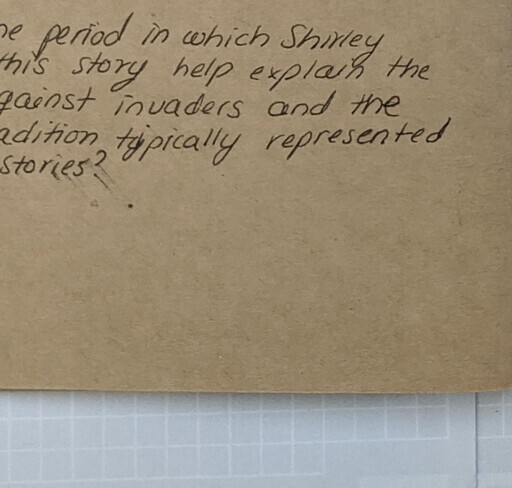 ne period in which Shirley
this story help explain the
gainst invaders and the
adition typically represented
stories?